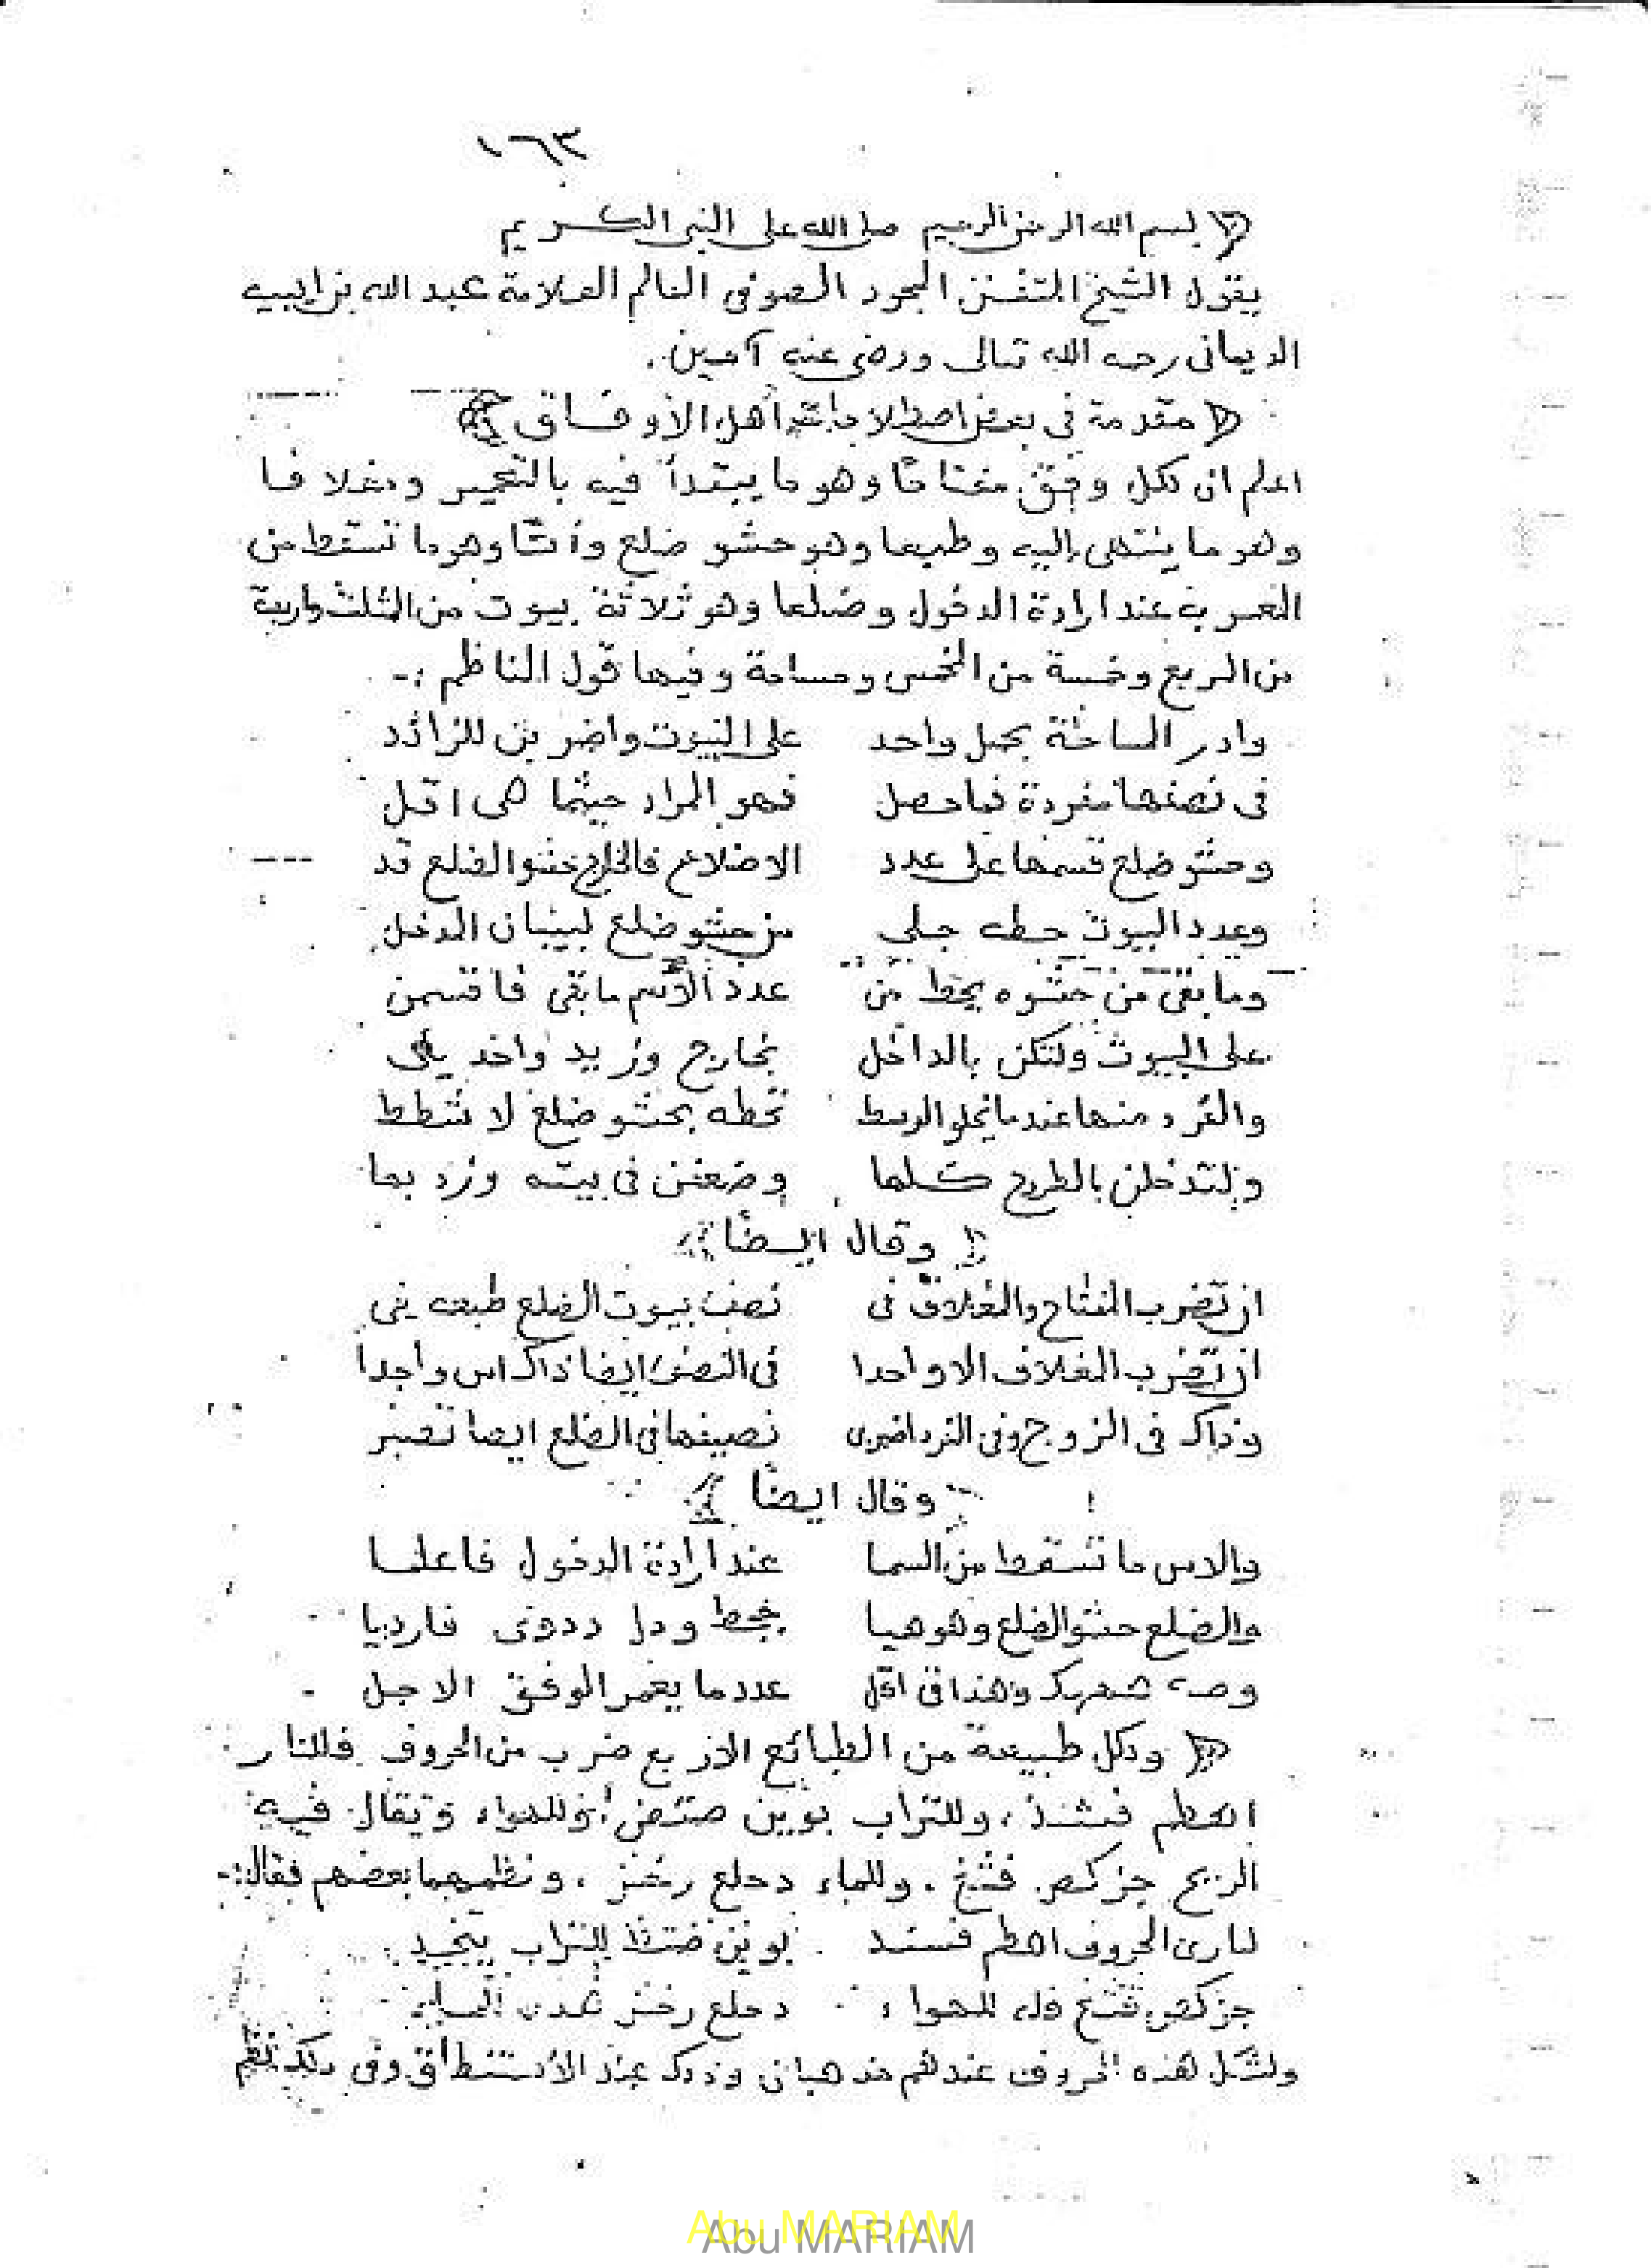 ١٦٣
بسم الله الرحمن الرحيم صلى الله على النبى الكريم
يقول الشيخ المتفنن المجود الصوفى العالم العلامة عبد الله بن ابيه
الديمانى رحمه الله تعالى ورضى عنه آمين.
مقدمة فى بعض اصطلاحات أهل الأوفاق
اعلم ان لكل وفق مفتاحًا وهو ما يبتدأ فيه بالتعمير ومغلاقا
وهو ما ينتهى إليه وطبعا وهو حشو ضلع وأسًّا وهو ما تسقط من
المضروب عند ارادة الدخول وضلعا وهو ثلاثة بيوت من المثلث واربعة
من المربع وخمسة من المخمس ومساحة وفيها قول الناظم :-
وادر المساحة بحمل واحد على البيوت واضربن للزائد
فى نصفها مفردة فما حصل فهو المراد حيثما هى اقل
وحشو ضلع قسمها على عدد الاضلاع فالخارج حشو الضلع قد
وعدد البيوت حطه جلى من حشو ضلع لبيان المدخل
وما بقى من حشوه يحط من عدد الأسم ما بقى فاقسمن
على البيوت ولتكن بالداخل بخارج وزيد واحد يلى
والفرد منها عند ما يخلو الوسط تحطه بحشو ضلع لا شطط
ولتدخلن بالطرح كلما وضعفن فى بيته وزد بما
وقال ايضًا
ان تضرب المفتاح والمغلاق فى نصف بيوت الضلع طبعه يفى
ان تضرب المغلاق الا واحدا فى النصف ايضا ذاك اس واجدا
وذاك فى الزوج وفى الفرد اضرب نصيفها فى الضلع ايضا تصب
وقال ايضًا
والاس ما تسقط من السما عند ارادة الدخول فاعلما
والضلع حشو الضلع وهو هيا
عدد ما يعمر الوفق الاجل
ولكل طبيعة من الطبائع الاربع ضرب من الحروف فللنار
اهطم فشذ، وللتراب بوين صتض، وللهواء ويقال فيه
الريح جزكص فثغ. وللماء دحلع رخغ، ونظمها بعضهم فقال:-
لنارى الحروف اهطم فشذ بوين
جزكص فثغ وله للهوا دحلع رخغ
ولشكل هذه الحروف عندهم مذهبان وذلك عند الاستنطاق وفى ذلك
Abu MARIAM